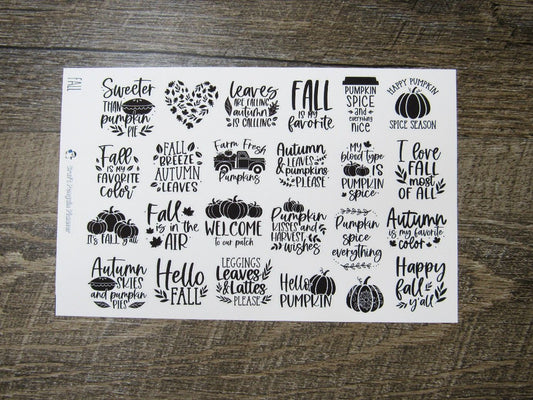 FALL
Sweeter
THAN
pumpkin
PIE
Leaves
ARE FALLING
autumn
IS CALLING
FALL
is my
favorite
PUMPKIN
SPICE
and
everything
nice
HAPPY PUMPKIN
SPICE SEASON
Fall
IS MY
FAVORITE
color
FALL
BREEZE
AUTUMN
LEAVES
Farm Fresh
Pumpkins
Autumn
LEAVES
& pumpkins
PLEASE
My
blood type
IS
PUMPKIN
spice
I love
FALL
most
OF ALL
IT'S FALL y'all
Fall
IS IN THE
AIR
WELCOME
to our patch
Pumpkin
KISSES AND
HARVEST
wishes
Pumpkin
spice
everything
Autumn
is my favorite
color
Autumn
SKIES
and pumpkin
PIES
Hello
FALL
LEGGINGS
Leaves
& Lattes
PLEASE
Hello
PUMPKIN
Happy
fall
y'all